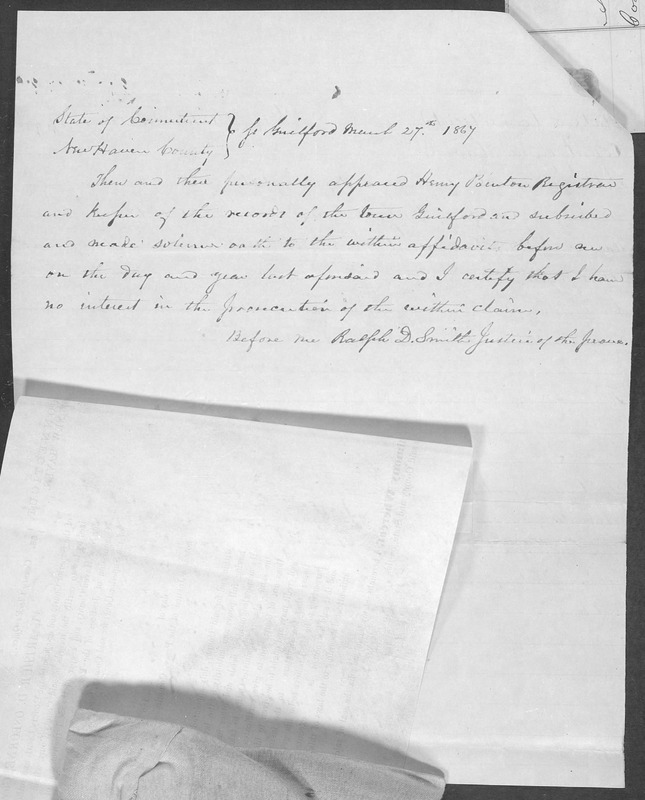 State of Connecticut } ss Guilford March 27th 1867
New Haven County
Then and there personally appeared Henry Benton Registrar
and keeper of the records of the Town Guilford and subscribed
and made solemn oath to the within affidavit before me
on the day and year last aforesaid and I certify that I have
no interest in the prosecution of the within claim.
Before me Ralph D. Smith Justice of the peace.